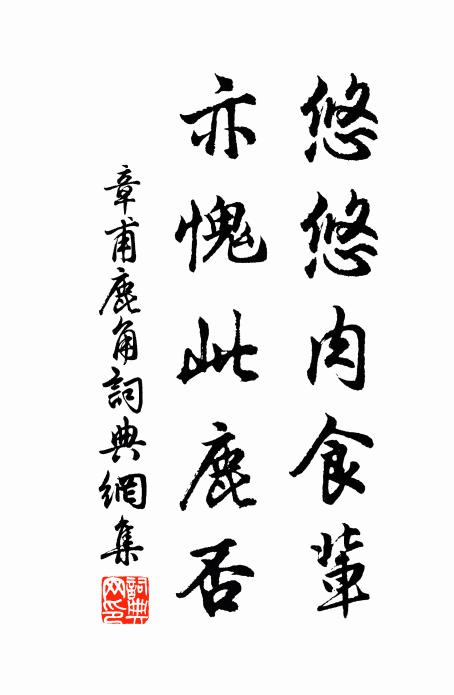 悠悠肉食輩
亦愧此鹿否
章甫鹿角詞典網集
詞典網印